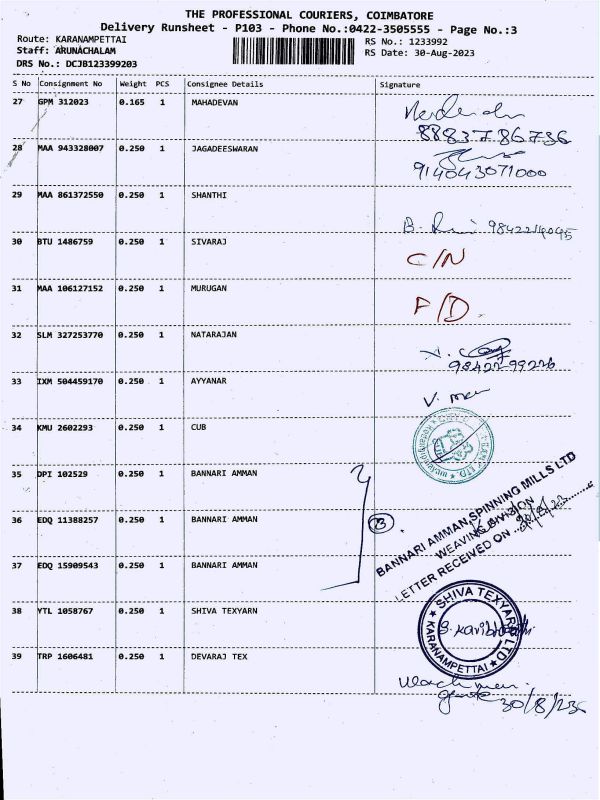 THE PROFESSIONAL COURIERS, COIMBATORE
Delivery Runsheet - P103 - Phone No.:0422-3505555 - Page No.:3
Route: KARANAMPETTAI RS No.: 1233992
Staff: ARUNACHALAM RS Date: 30-Aug-2023
DRS No.: DCJB123399203
S No Consignment No Weight PCS Consignee Details Signature
27 GPM 312023 0.165 1 MAHADEVAN
8883786736
28 MAA 943328007 0.250 1 JAGADEESWARAN
914043071000
29 MAA 861372550 0.250 1 SHANTHI
30 BTU 1486759 0.250 1 SIVARAJ C/N
31 MAA 106127152 0.250 1 MURUGAN F/D.
32 SLM 327253770 0.250 1 NATARAJAN
98422-99226
33 IXM 504459170 0.250 1 AYYANAR
34 KMU 2602293 0.250 1 CUB
35 DPI 102529 0.250 1 BANNARI AMMAN
36 EDQ 11388257 0.250 1 BANNARI AMMAN
37 EDQ 15909543 0.250 1 BANNARI AMMAN
BANNARI AMMAN SPINNING MILLS LTD
WEAVING DIVISION
LETTER RECEIVED ON
38 YTL 1058767 0.250 1 SHIVA TEXYARN
SHIVA TEXYARN LTD
KARANAMPETTAI
39 TRP 1606481 0.250 1 DEVARAJ TEX
30/8/23